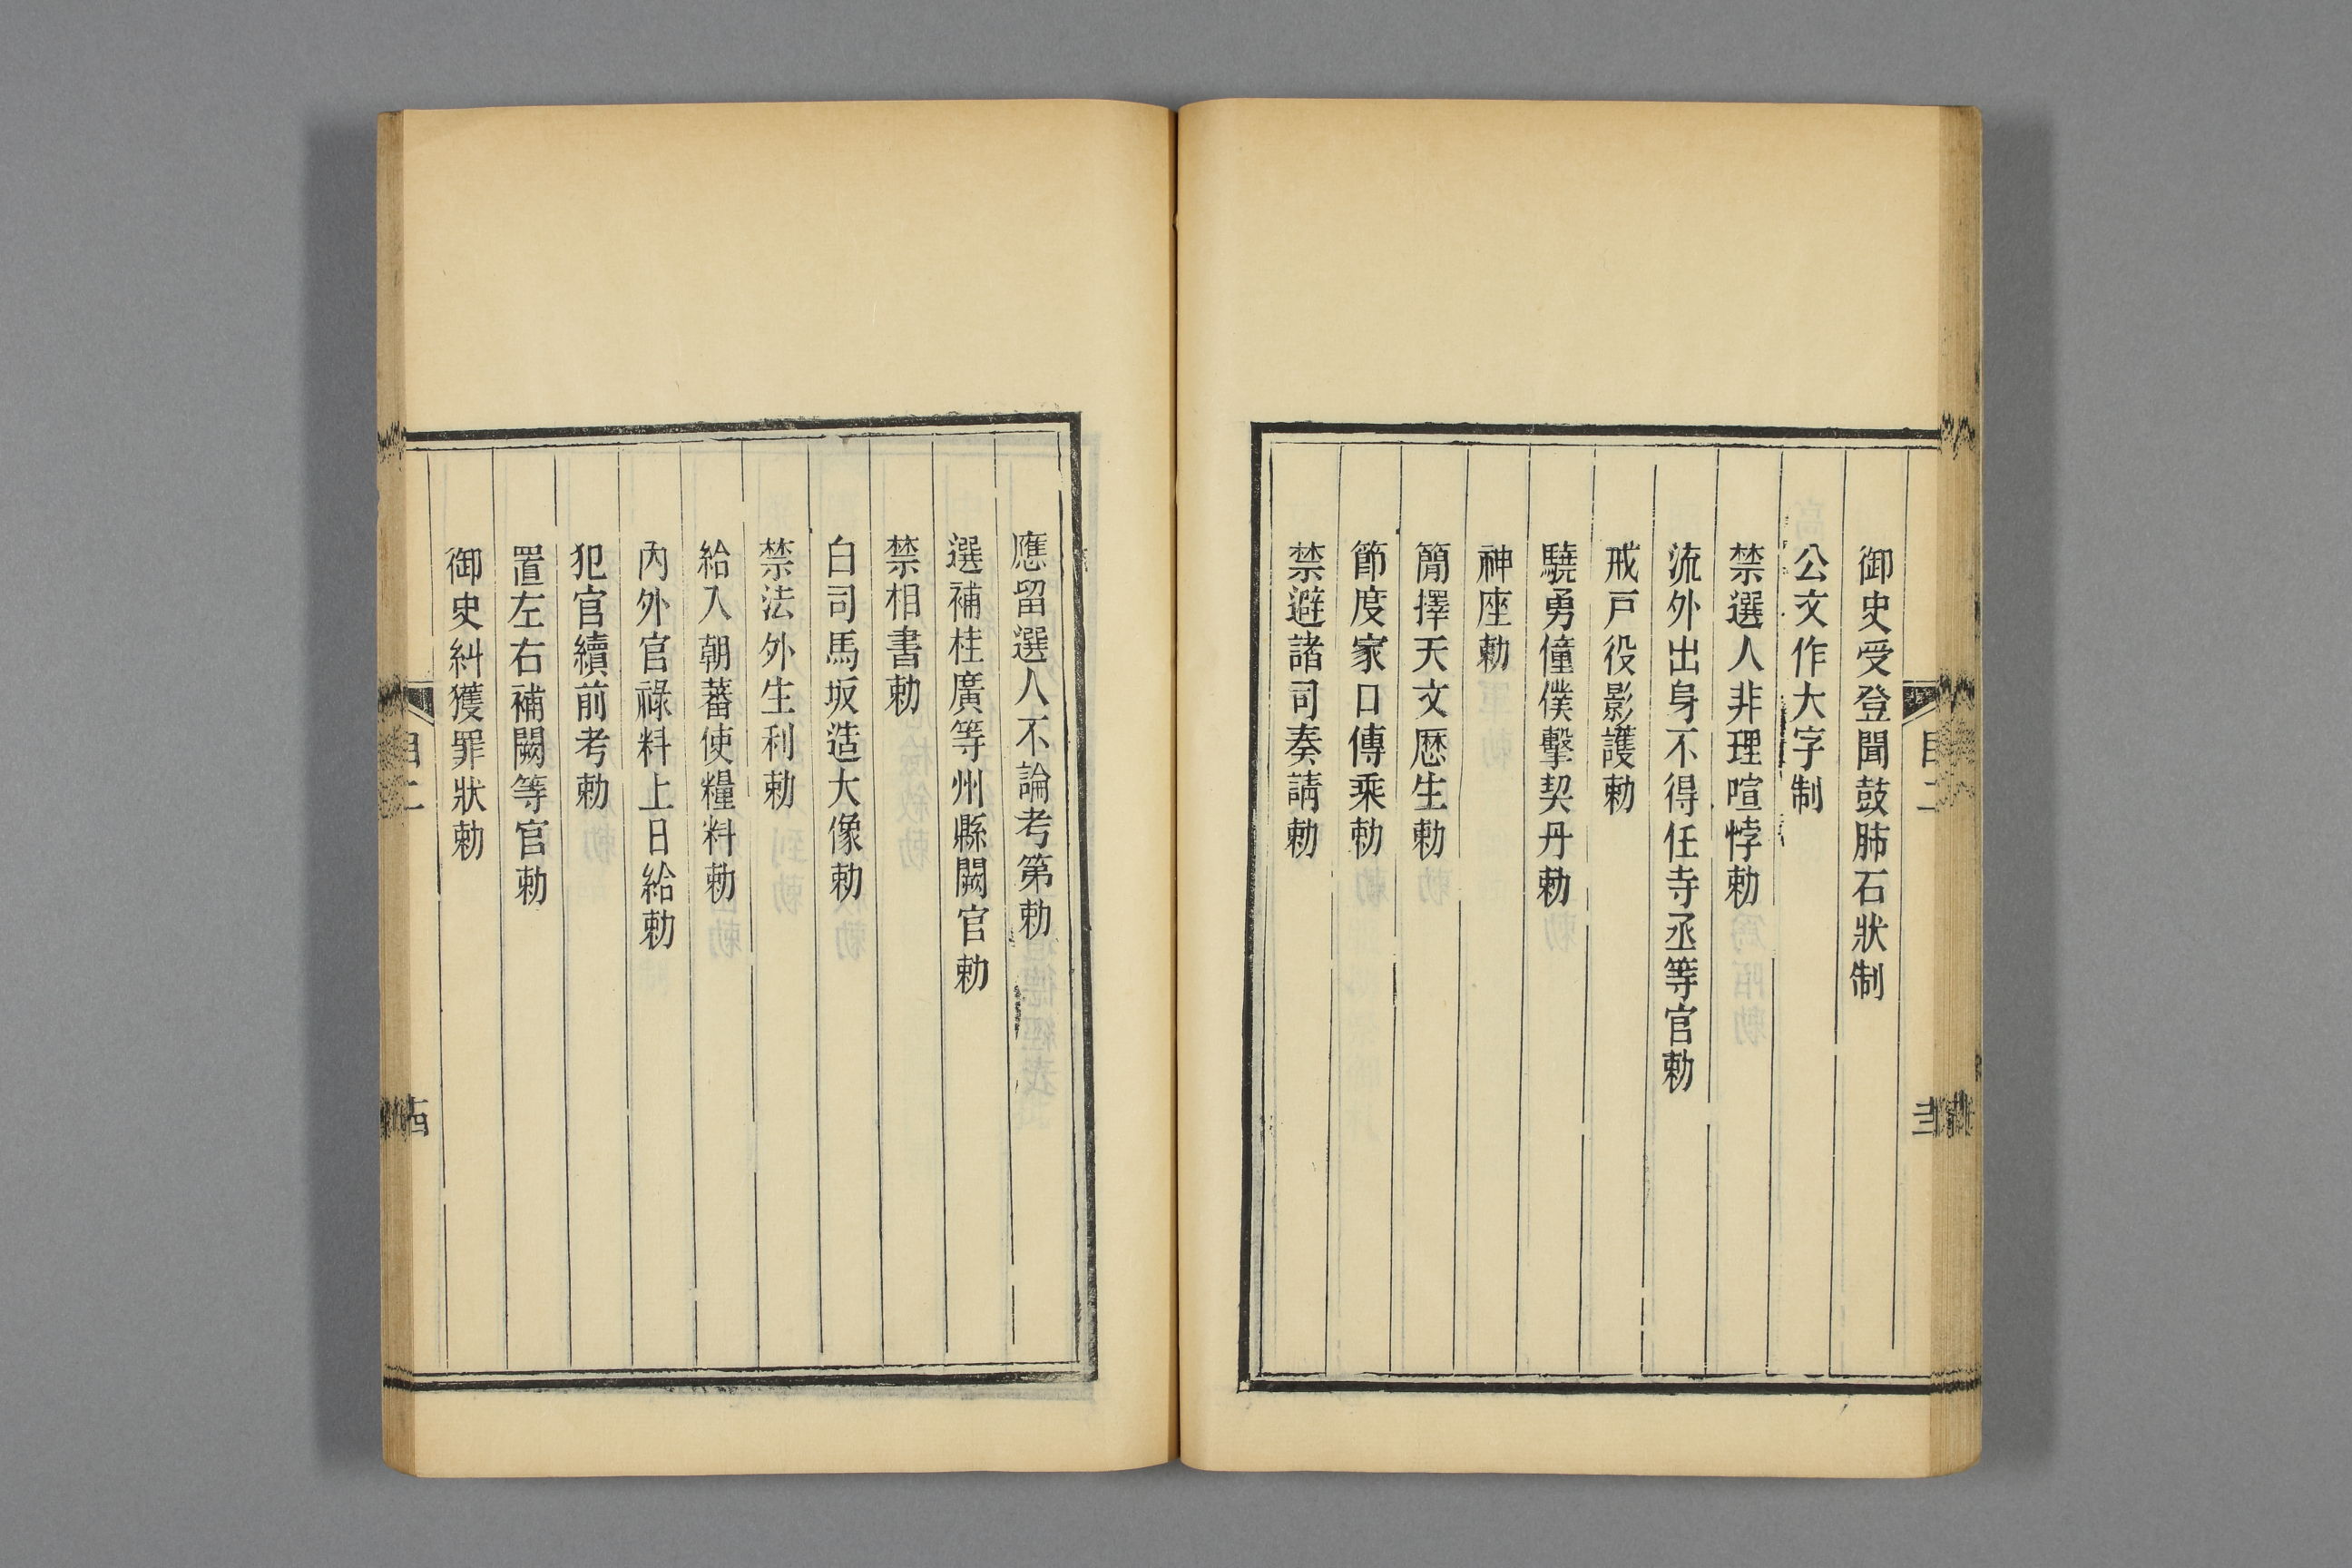 御史受登聞鼓肺石狀制
公文作大字制
禁選人非理喧悖勅
流外出身不得任寺丞等官勅
戒戸役影護勅
驍勇僮僕擊契丹勅
神座勅
簡擇天文歷生勅
節度家口傳乘勅
禁避諸司奏請勅
目二
應留選人不論考第勅
選補桂廣等州縣闕官勅
禁相書勅
白司馬坂造大像勅
禁法外生利勅
給入朝蕃使糧料勅
內外官祿料上日給勅
犯官續前考勅
置左右補闕等官勅
御史糾獲罪狀勅
目二